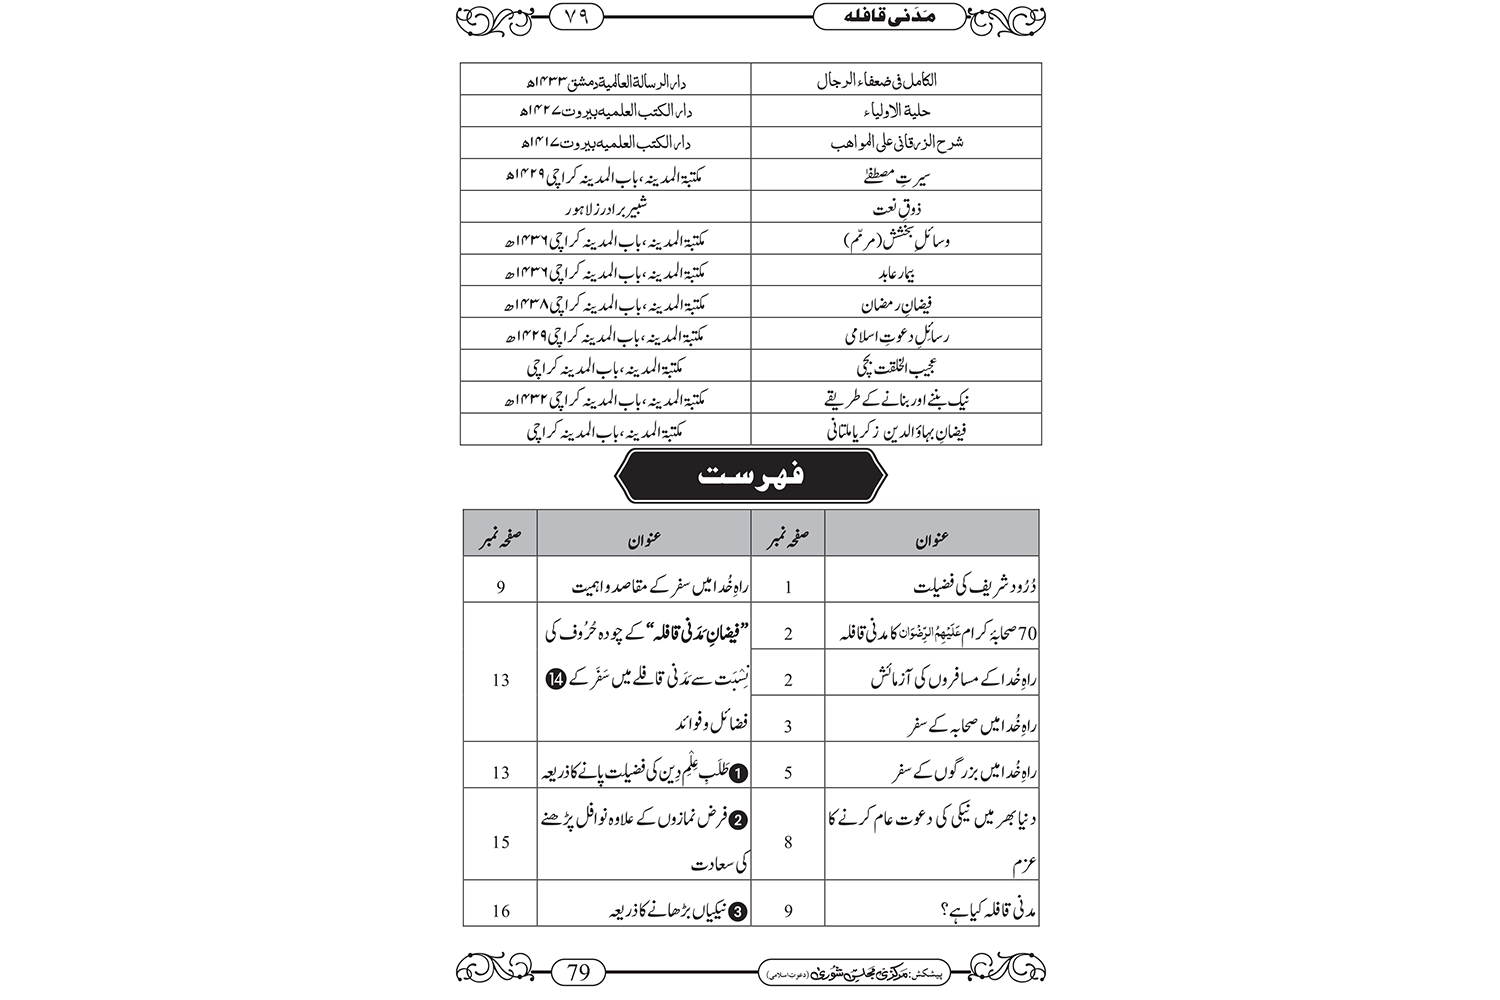 مَدَنی قافلہ ۷۹
الکامل فی ضعفاء الرجال دار الرسالة العالمیة دمشق ۱۴۳۳ھ
حلیة الاولیاء دار الکتب العلمیہ بیروت ۱۴۲۷ھ
شرح الزرقانی علی المواھب دار الکتب العلمیہ بیروت ۱۴۱۷ھ
سیرتِ مصطفیٰ مکتبۃ المدینہ، باب المدینہ کراچی ۱۴۲۹ھ
ذوقِ نعت شبیر برادرز لاہور
وسائلِ بخشش (مرمّم) مکتبۃ المدینہ، باب المدینہ کراچی ۱۴۳۶ھ
بیمار عابد مکتبۃ المدینہ، باب المدینہ کراچی ۱۴۳۶ھ
فیضانِ رمضان مکتبۃ المدینہ، باب المدینہ کراچی ۱۴۳۸ھ
رسائلِ دعوتِ اسلامی مکتبۃ المدینہ، باب المدینہ کراچی ۱۴۲۹ھ
عجیب الخلقت بچی مکتبۃ المدینہ، باب المدینہ کراچی
نیک بننے اور بنانے کے طریقے مکتبۃ المدینہ، باب المدینہ کراچی ۱۴۳۲ھ
فیضانِ بہاؤالدین زکریا ملتانی مکتبۃ المدینہ، باب المدینہ کراچی
فہرست
عنوان صفحہ نمبر عنوان صفحہ نمبر
دُرُود شریف کی فضیلت 1
70 صحابۂ کرام عَلَیْہِمُ الرِّضْوَان کا مدنی قافلہ 2
راہِ خُدا کے مسافروں کی آزمائش 2
راہِ خُدا میں صحابہ کے سفر 3
راہِ خُدا میں بزرگوں کے سفر 5
دنیا بھر میں نیکی کی دعوت عام کرنے کا
عزم 8
مدنی قافلہ کیا ہے؟ 9
راہِ خُدا میں سفر کے مقاصد و اہمیت 9
”فیضانِ مَدَنی قافلہ“ کے چودہ حُرُوف کی
نِسْبَت سے مَدَنی قافلے میں سَفَر کے 14
فضائل و فوائد 13
1 طَلَبِ عِلْمِ دِین کی فضیلت پانے کا ذریعہ 13
2 فرض نمازوں کے علاوہ نوافل پڑھنے
کی سعادت 15
3 نیکیاں بڑھانے کا ذریعہ 16
پیشکش: مَرکزی مَجلسِ شُوریٰ (دعوتِ اسلامی) 79